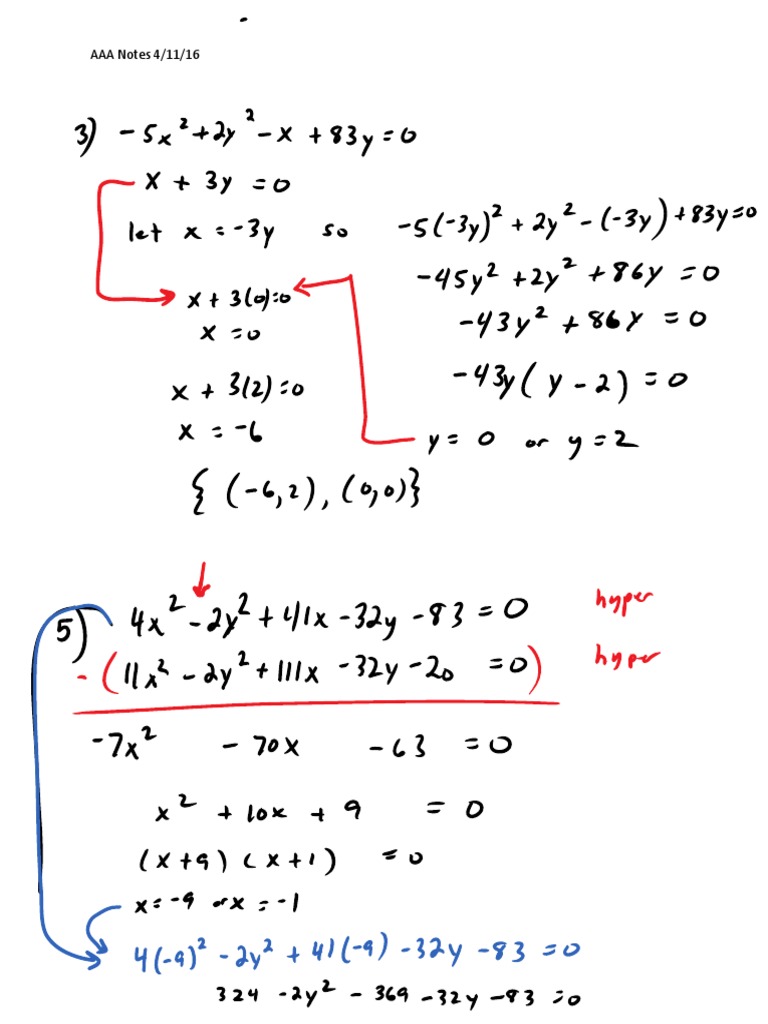 AAA Notes 4/11/16
3) -5x² + 2y² - x + 83y = 0
x + 3y = 0
let x = -3y so -5(-3y)² + 2y² - (-3y) + 83y = 0
-45y² + 2y² + 86y = 0
x + 3(0) = 0
-43y² + 86y = 0
x = 0
-43y(y - 2) = 0
x + 3(2) = 0
x = -6
y = 0 or y = 2
{(-6, 2), (0, 0)}
5) 4x² - 2y² + 41x - 32y - 83 = 0 hyper
- (11x² - 2y² + 111x - 32y - 20 = 0) hyper
-7x² - 70x - 63 = 0
x² + 10x + 9 = 0
(x + 9)(x + 1) = 0
x = -9 or x = -1
4(-9)² - 2y² + 41(-9) - 32y - 83 = 0
324 - 2y² - 369 - 32y - 83 = 0